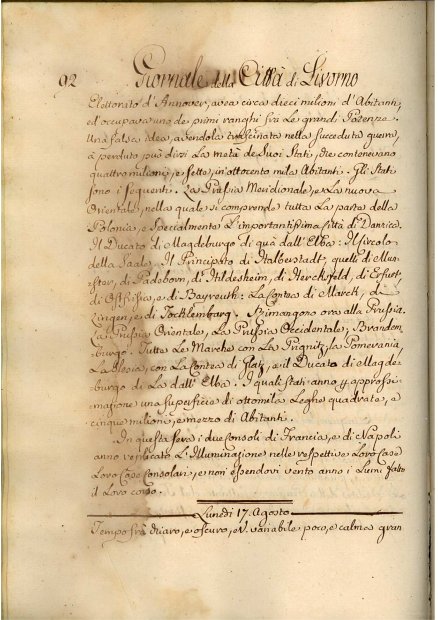 92 Giornale della Città di Livorno
Elettorato d'Annover, avea circa dieci milioni d'Abitanti,
ed occupava uno de primi ranghi frà Le grandi Potenze.
Una falsa idea, avendola trascinata nella succeduta guerra,
à perduto può dirsi La metà de Suoi Stati, che contenevano
quattro milioni, e sette, in ottocento mila Abitanti. Gli Stati
sono i sequenti. La Prussia Meridionale, e La nuova
Orientale, nella quale si comprende tutta La parte della
Polonia, e Specialmente L'importantissima Città di Danzica.
Il Ducato di Magdeburgo di quà dall'Elba: Il Circolo
della Saale. Il Principato di Halberstadt, quelli di Mun-
ster, di Padeborn, di Hildesheim, di Herchsfeld, di Erfurt,
di Ostfrisia, e di Bayreuth: La Contea di Marck, di
Lingen, e di Tocklembarg. Rimangono ora alla Prussia
La Prussia Orientale, La Prussia Occidentale; Brandem-
burgo. Tutte Le Marche con La Prignitz; la Pomerania,
La Slesia, con La Contea di Glatz, e il Ducato di Magde-
burgo di La dall'Elba. I quali stati anno p approssi-
mazione una superficie di ottomila Leghe quadrate, e
cinque milioni, e mezzo di Abitanti.
In questa sera i due Consoli di Francia, e di Napoli
anno verificato L'Illuminazione nelle respettive Loro Case
Loro Case Consolari, e non essendovi vento anno i Lumi fatto
il Loro corso.
Lunedì 17. Agosto
Tempo frà chiaro, e oscuro, e V. variabile poco, e calma gran